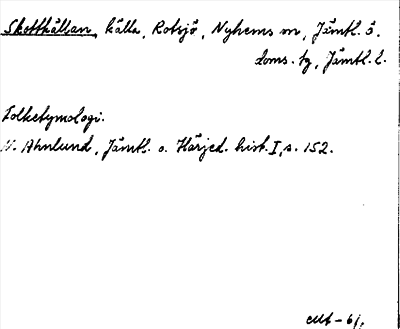 Skottkällan, källa, Rotsjö, Nyhems sn, Jämtl. ö.
doms. tg, Jämtl. l.
Folketymologi.
N. Ahnlund, Jämtl. o. Härjed. hist. I, s. 152.